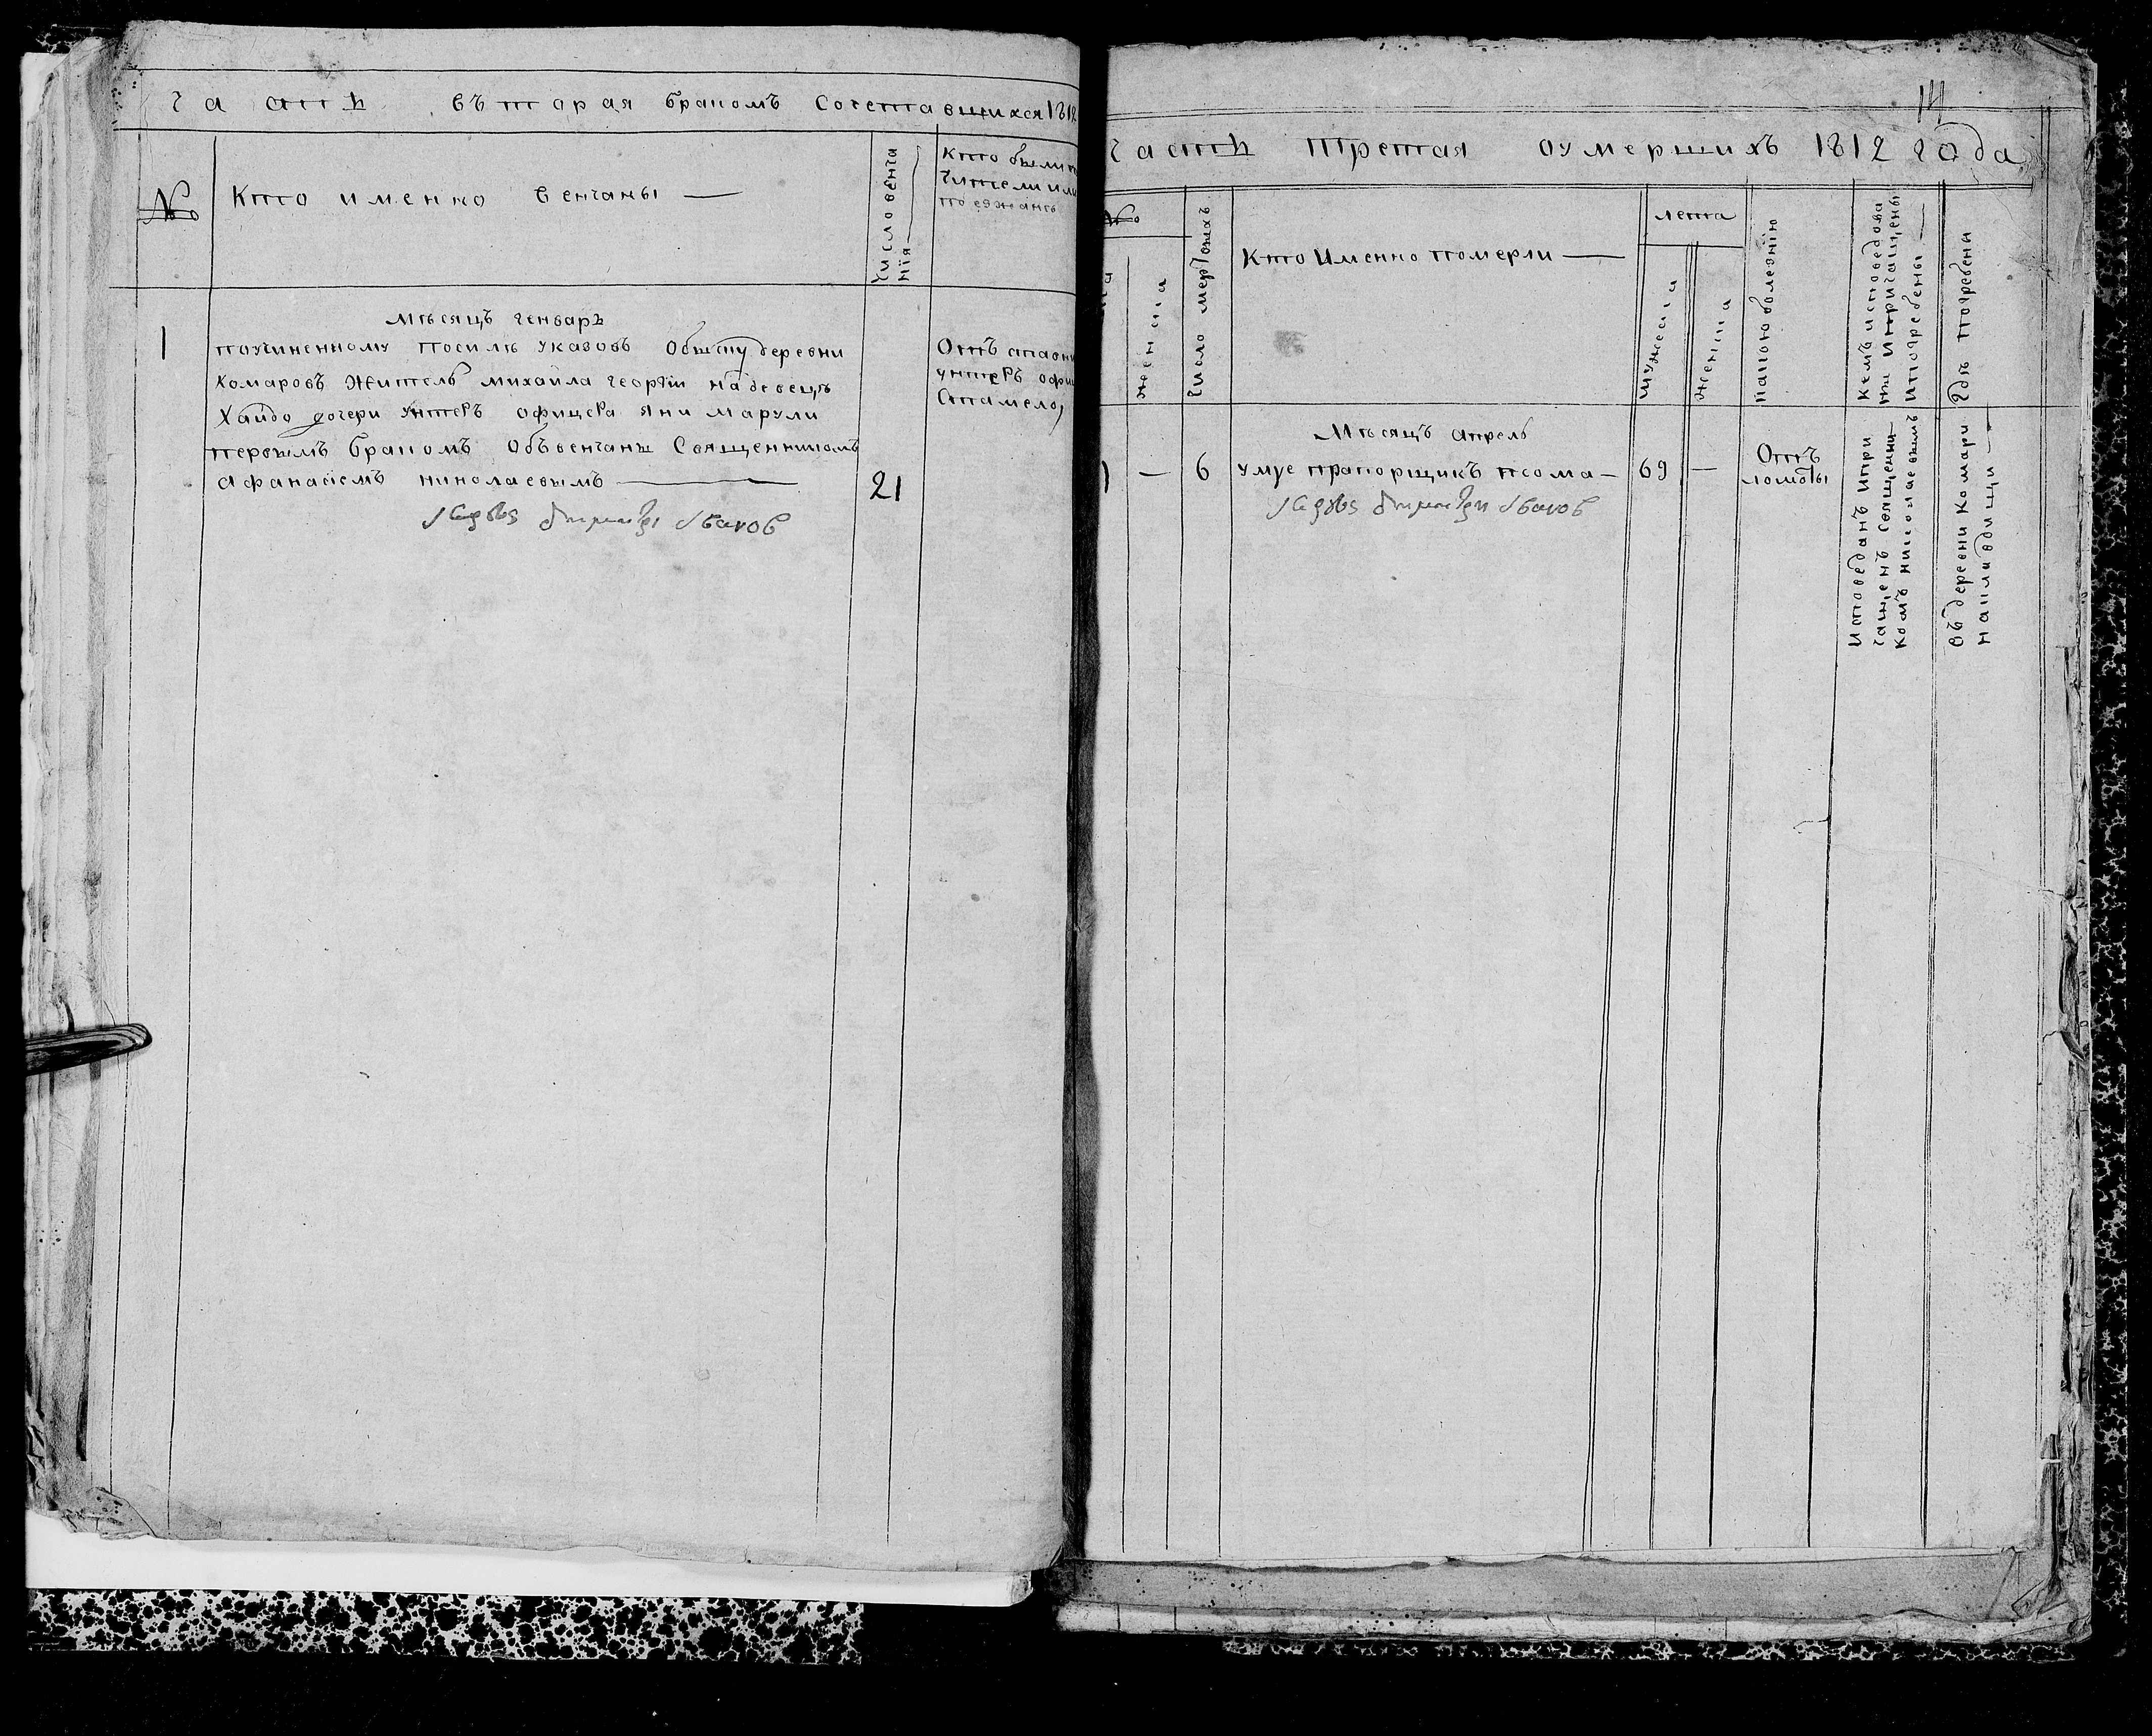 часть въторая бракомъ сочетавшихся 1812
№
Кто именно венчаны —
Число венча
нія —
Кто были по
чители или
поезжанъ
Мѣсяцъ генваръ
1
поучиненному посилѣ указовъ обыску деревни
комаровъ житель михайла георгіи
Хайдо дочери унтеръ офицера яни марули
первымъ бракомъ объвенчанъ Священникомъ
афанасіемъ николаевымъ —
21
Отъ
унтеръ офи
Стамело
14
часть третая оумершихъ 1812 года
№
женска
Число мертвыхъ
Кто именно померли —
лета
мужеска
женска
какою болезнію
Кемъ исповедова
ны и причащены
и погребены —
Гдѣ погребени
Мѣсяцъ апрель
1
—
6
умре прапорщикъ псома —
69
—
Отъ
ломоты
исповеданъ и при
чащенъ священни
комъ николаевымъ
въ деревни комари
накладбищи —